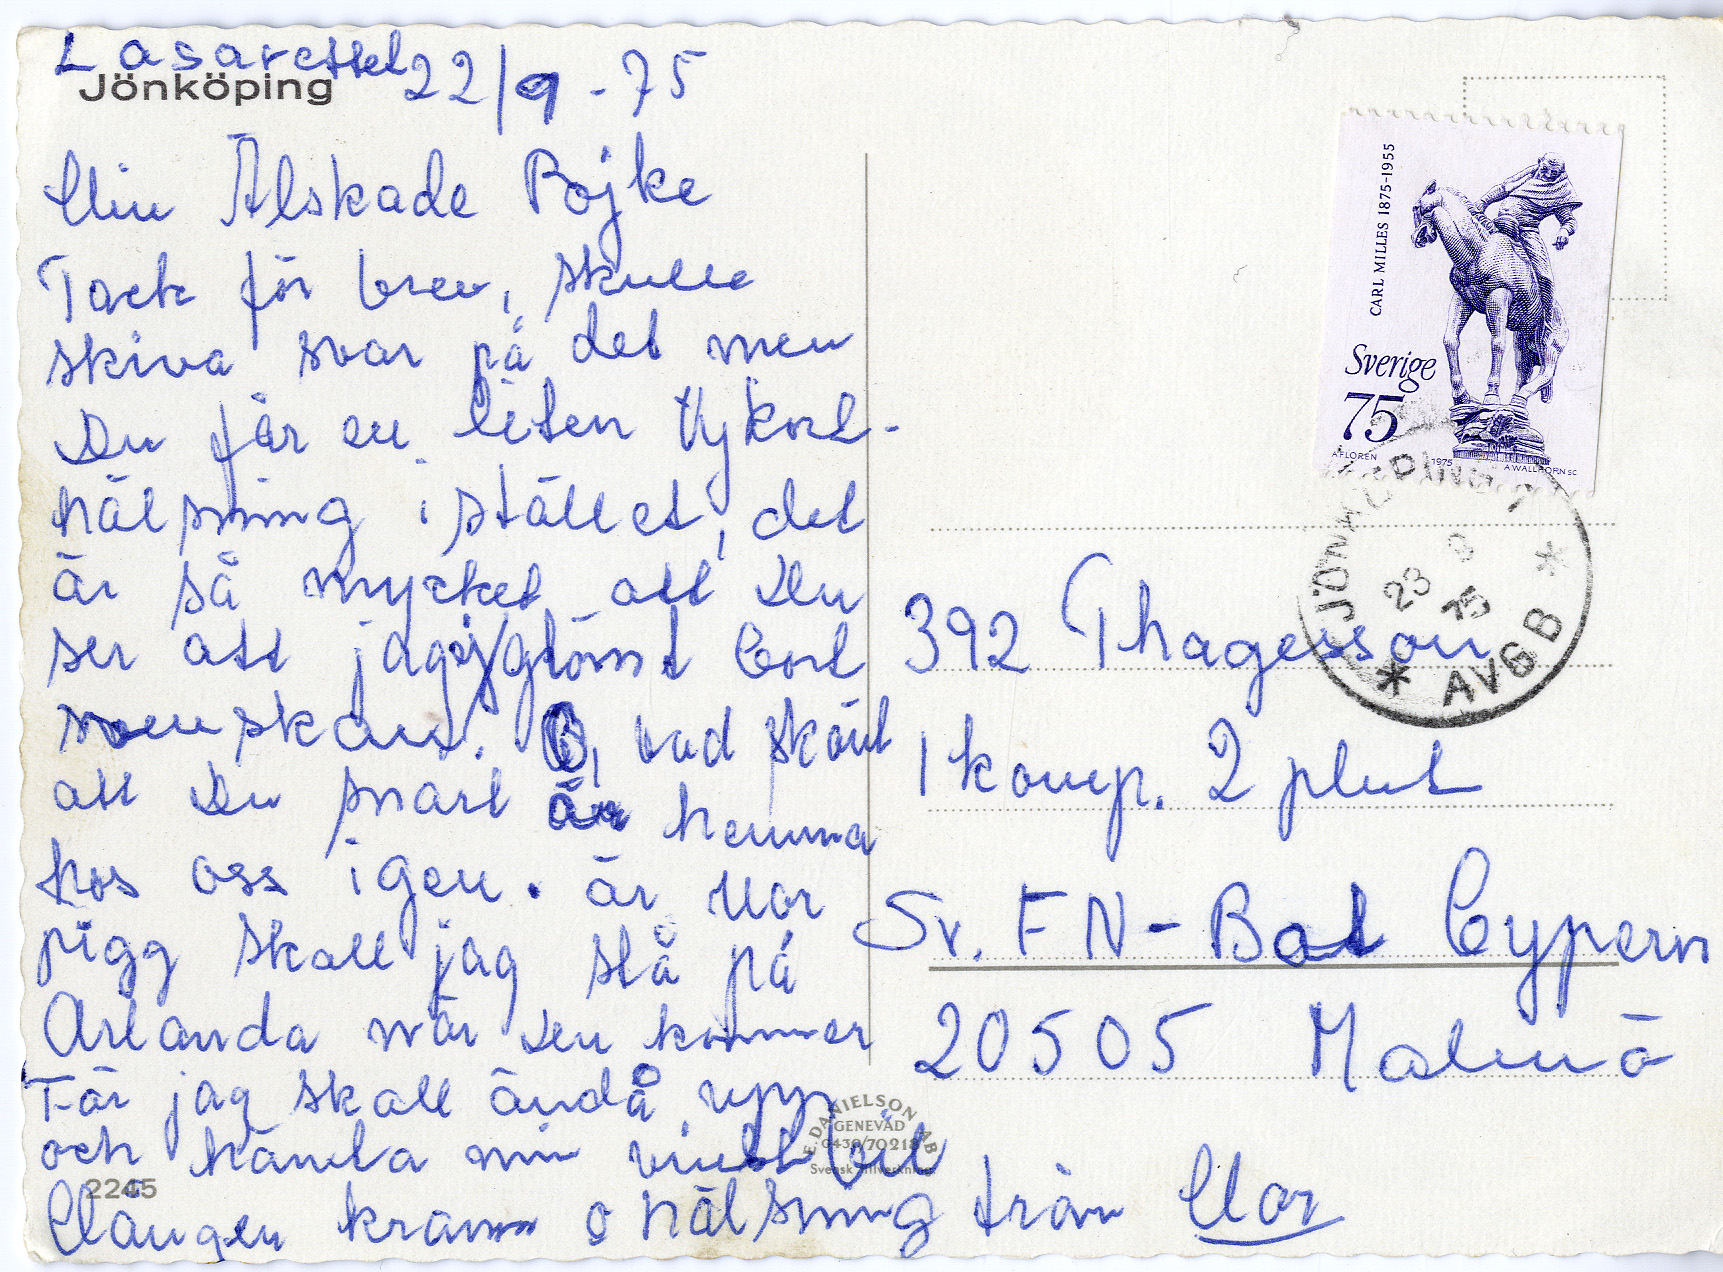 Lasarettet 22/9 - 75
Jönköping
Min Älskade Pojke
Tack för brev, skulle
skiva svar på det men
Du får en liten Vykort-
hälsning i stället, det
är så mycket att Du
ser att jag ej glömt bort
svenskan. O, vad skönt
att Du snart är hemma
hos oss igen. är Mor
pigg skall jag stå på
Arlanda när Du kommer
För jag skall ändå upp
och hämta min vinst bil
Mången kram o hälsning från Mor
2245
E. DANIELSON AB
GENEVAD
0430/70218
Svensk tillverkning
CARL MILLES 1875-1955
Sverige
75
A FLOREN 1975 A WALLHORN SC
JÖNKÖPING 1
23 9
75
* AVG B *
392 Thagesson
1 komp. 2 plut
Sv. FN-Bat Cypern
20505 Malmö